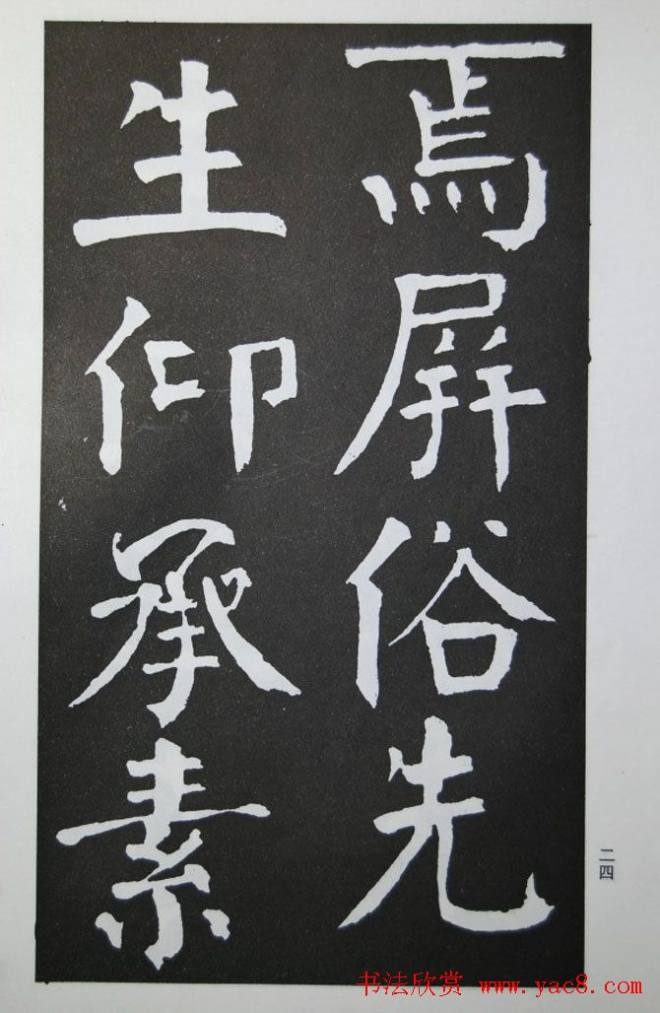 焉屏俗先
生仰承素
二四
书法欣赏 www.yac8.com